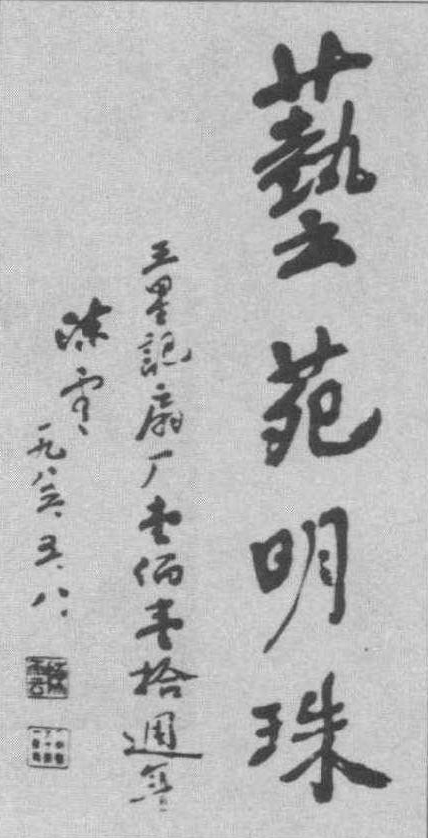 藝苑明珠
王星記扇厂壹佰壹拾週年
陳雲
一九八六、五、八、